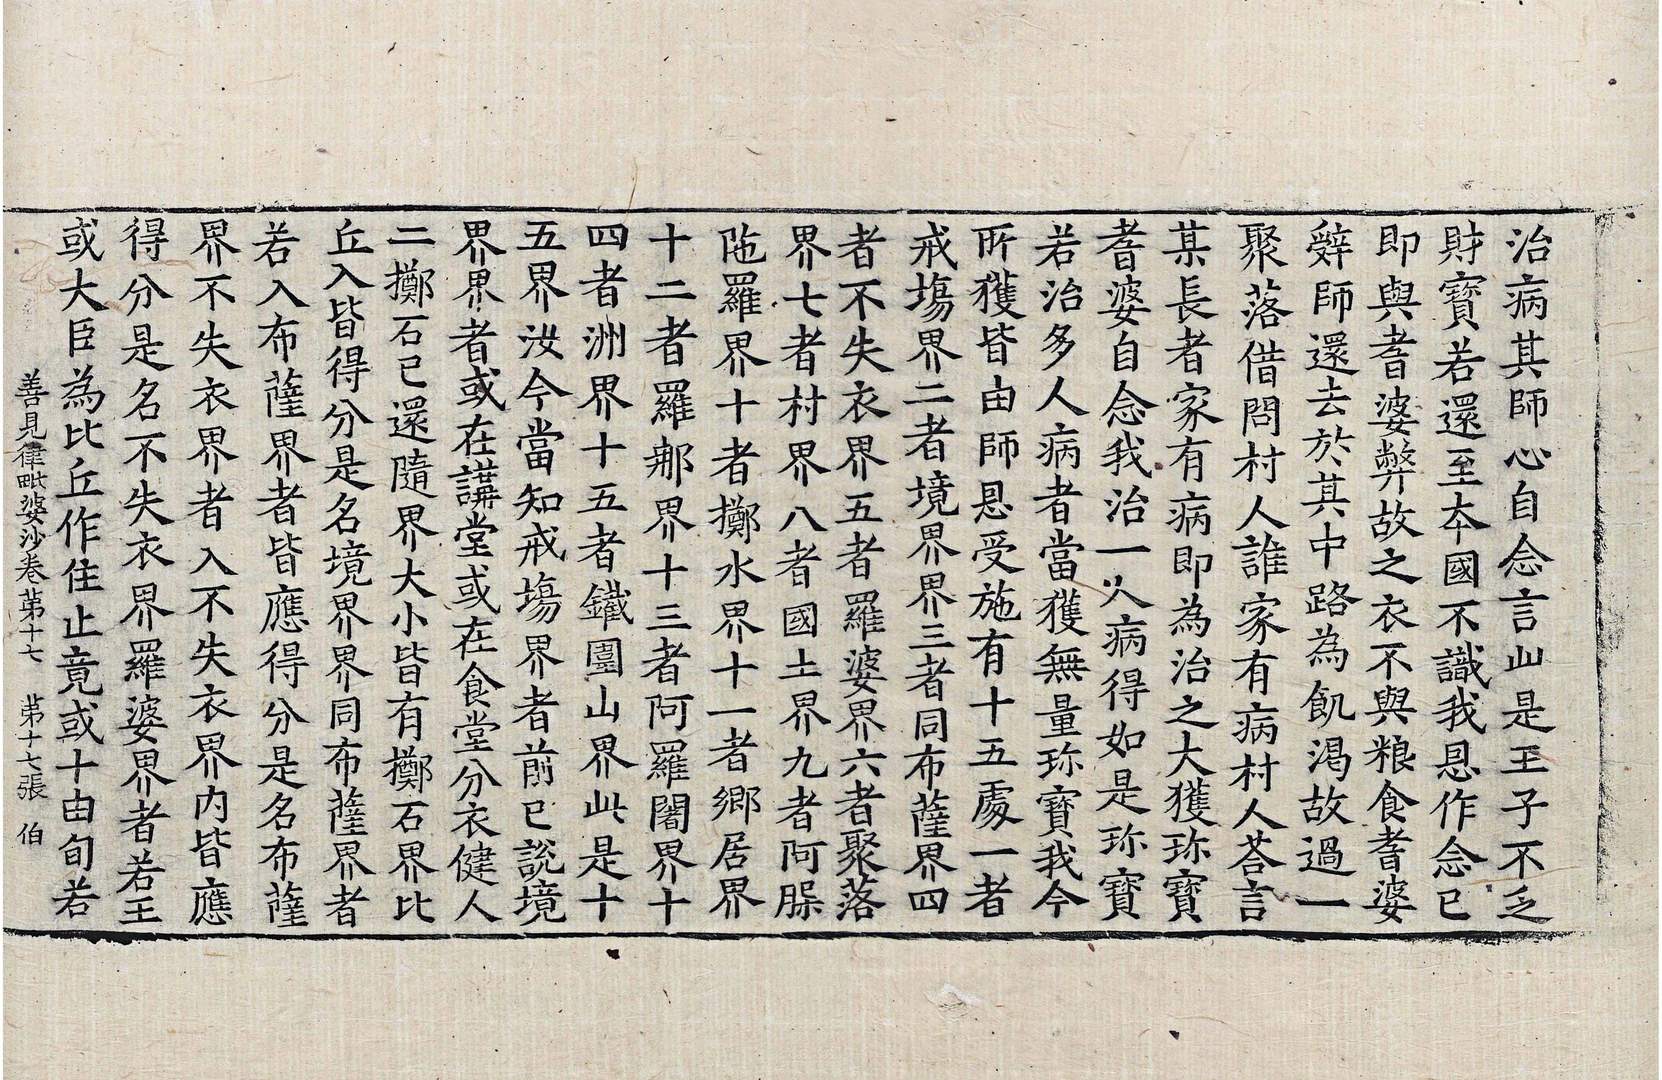 治病其師心自念言此是王子不乏
財寶若還至夲國不識我恩作念已
即與耆婆弊故之衣不與粮食耆婆
辝師還去於其中路為飢渴故過一
聚落借問村人誰家有病村人荅言
某長者家有病即為治之大獲珎寶
耆婆自念我治一人病得如是珎寶
若治多人病者當獲無量珎寶我今
所獲皆由師恩受施有十五處一者
戒塲界二者境界界三者同布薩界四
者不失衣界五者羅婆界六者聚落
界七者村界八者國土界九者阿𦜕
陁羅界十者擲水界十一者鄉居界
十二者羅郍界十三者阿羅闍界十
四者洲界十五者鐵圍山界此是十
五界汝今當知戒塲界者前已說境
界界者或在講堂或在食堂分衣健人
二擲石已還隨界大小皆有擲石界比
丘入皆得分是名境界界同布薩界者
若入布薩界者皆應得分是名布薩
界不失衣界者入不失衣界内皆應
得分是名不失衣界羅婆界者若王
或大臣為比丘作住止竟或十由旬若
善見律毗婆沙卷苐十七 苐十七張 伯